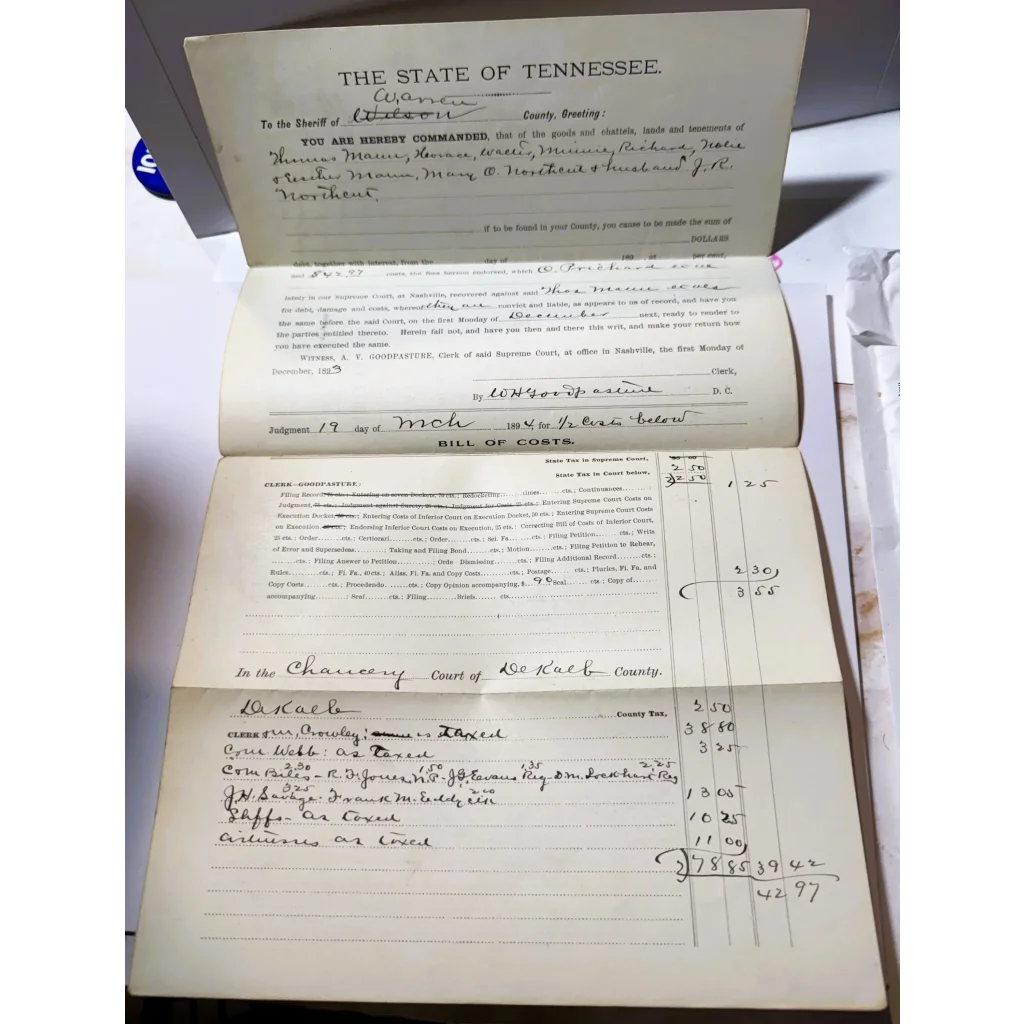 THE STATE OF TENNESSEE.
Warren
To the Sheriff of Wilson County, Greeting:
YOU ARE HEREBY COMMANDED, that of the goods and chattels, lands and tenements of
Thomas Mann, Horace, Walter, Minnie, Richard, Nolie
& Mann, Mary O. Northcut & husband J. R.
Northcut,
if to be found in your County, you cause to be made the sum of
DOLLARS
debt, together with interest, from the day of 189 at per cent,
and $42.97 costs, the same hereon endorsed, which O. Prichard et ux
lately in our Supreme Court, at Nashville, recovered against said Thos Mann et als
for debt, damage and costs, whereof they are convict and liable, as appears to us of record, and have you
the same before the said Court, on the first Monday of December next, ready to render to
the parties entitled thereto. Herein fail not, and have you then and there this writ, and make your return how
you have executed the same.
WITNESS, A. V. GOODPASTURE, Clerk of said Supreme Court, at office in Nashville, the first Monday of
December, 1893
Clerk,
By WHGoodpasture D. C.
Judgment 19 day of Mch 1894, for 1/2 Costs below
BILL OF COSTS.
State Tax in Supreme Court,
State Tax in Court below, 2 50
CLERK—GOODPASTURE: 2)2 50 1 25
Filing Record, 25 cts.; Entering on seven Dockets, 70 cts.; Redocketing times cts.; Continuances
Judgment, 75 cts.; Judgment against Surety, 25 cts.; Judgment for Costs 25 cts.; Entering Supreme Court Costs on
Execution Docket, 50 cts.; Entering Costs of Inferior Court on Execution Docket, 50 cts.; Entering Supreme Court Costs
on Execution cts.; Endorsing Inferior Court Costs on Execution, 25 cts.; Correcting Bill of Costs of Inferior Court,
25 cts.; Order cts.; Certiorari cts.; Order cts.; Sci. Fa. cts.; Filing Petition cts.; Writs
of Error and Supersedeas Taking and Filing Bond cts.; Motion cts.; Filing Petition to Rehear,
cts.; Filing Answer to Petition cts.; Orde Dismissing cts.; Filing Additional Record cts.;
Rules cts.; Fi. Fa., 40 cts.; Alias. Fi. Fa. and Copy Costs cts.; Postage cts.; Pluries, Fi. Fa. and
Copy Costs cts.; Procedendo cts.; Copy Opinion accompanying, $ 90 Seal cts.; Copy of 2 30
accompanying Seal cts.; Filing Briefs cts. 3 55
In the Chancery Court of DeKalb County.
DeKalb County Tax, 2 50
CLERK Crowley: as Taxed 38 80
Com Webb: as Taxed 3 25
2.30 1.50 1.35 2.25
Com Biles - R. F. Jones, N.P. - J. Evans Reg - D.M. Lockhart Reg
3.25 2.00
J. H. Savage Frank M. Eddy 13 05
Shffs - as taxed 10 25
Witnesses as taxed 11 00
2)78 85 39 42
42 97